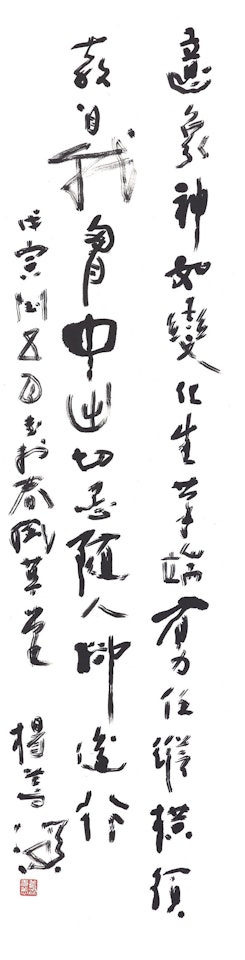 意象神如變化生筆端有力任縱橫須
教自我胸中出切忌隨人脚後行
戊寅閏五月書於春風草堂 楊萼